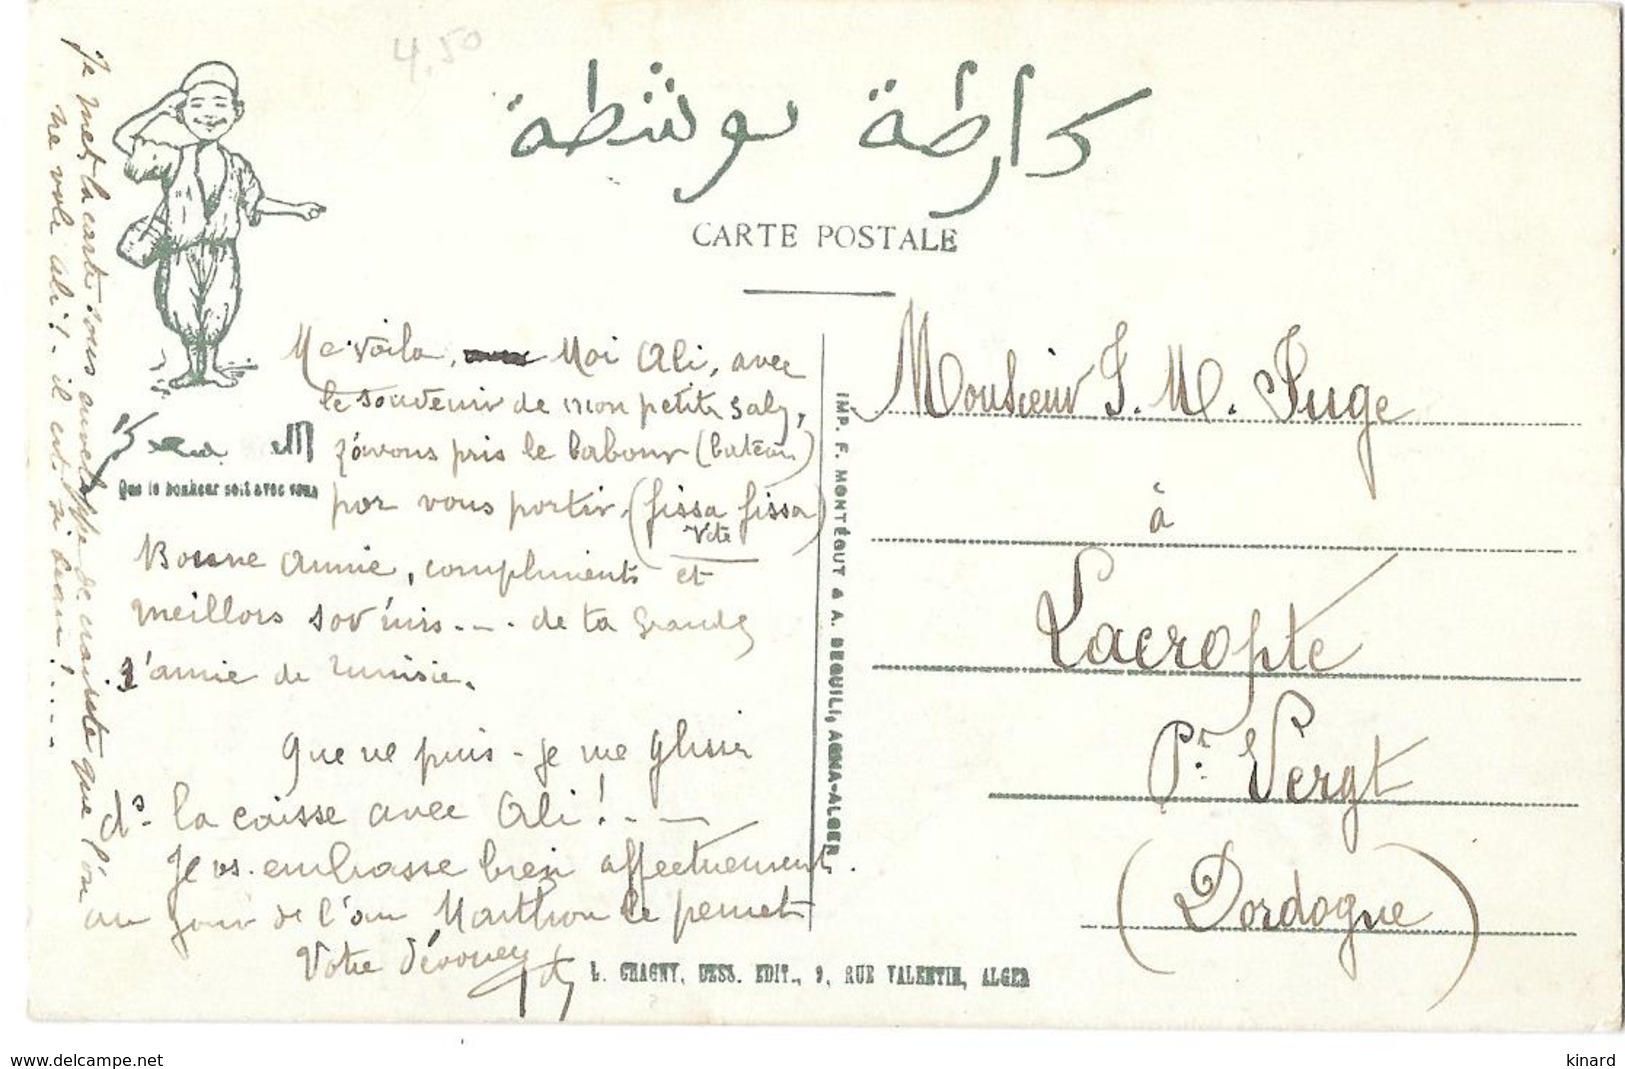 4,50
كارطة بوشطة
CARTE POSTALE
Me voila, Moi Ali, avec
le souvenir de mon petite Saly,
j'avons pris le babour (bateau)
por vous portir. (fissa fissa)
Vite
Que le bonheur soit avec vous
Bonne Annie, compliments et
meillors sov'nirs - - . de ta grande
z'amie de Tunisie.
Que ne puis-je me glisser
ds la caisse avec Ali! . - —
Je vs. embrasse bien affectueusement.
au jour de l'an le permet
Votre dévouée
Je mets la carte sous enveloppe de crainte que l'on
ne vole ali! - il est si beau! . . . .
Monsieur J. M. Puge
à
Lacropte
Pr. Vergt
(Dordogne)
IMP. F. MONTÉGUT & A. DEGUILI, AGHA-ALGER
L. CHAGNY, DESS. EDIT., 9, RUE VALENTIN, ALGER
www.delcampe.net
kinard